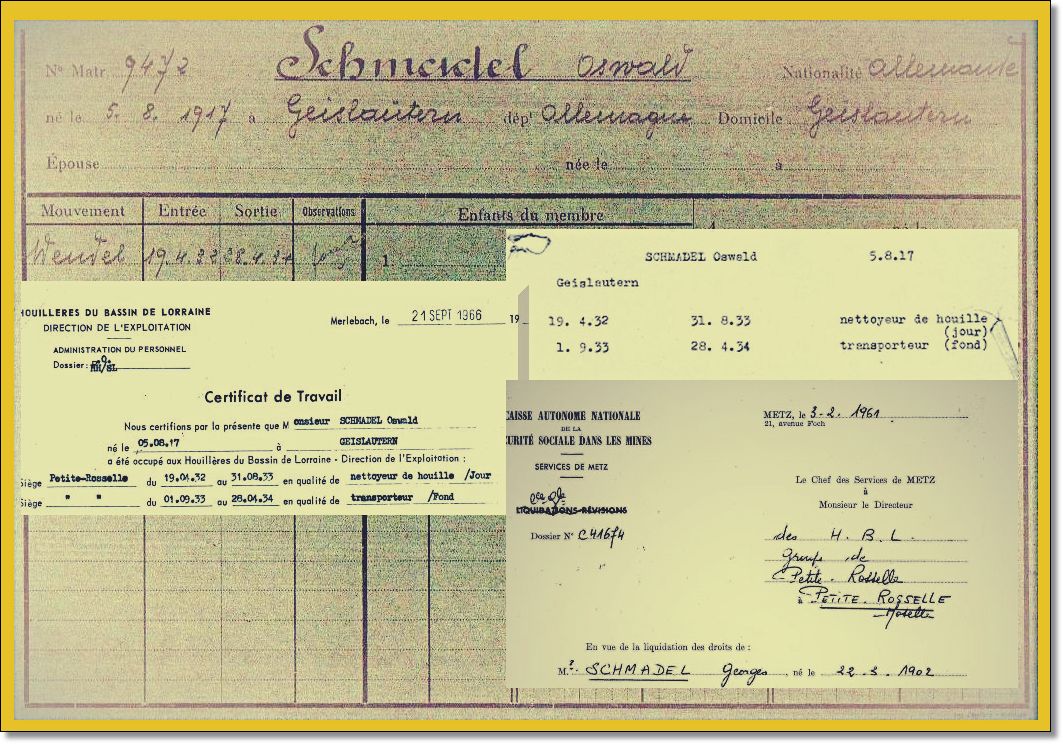 Nº Matr. 9472 Schmadel Oswald Nationalité Allemande
né le 5. 8. 1917 à Geislautern dépt Allemagne Domicile Geislautern
Épouse née le à
Mouvement Entrée Sortie Observations Enfants du membre
Wendel 19.4.32 28.4.34 1
SCHMADEL Oswald 5.8.17
Geislautern
19. 4.32 31. 8.33 nettoyeur de houille
(jour)
1. 9.33 28. 4.34 transporteur (fond)
HOUILLERES DU BASSIN DE LORRAINE
DIRECTION DE L'EXPLOITATION
Merlebach, le 21 SEPT 1966 19
ADMINISTRATION DU PERSONNEL
Dossier: HH/SL
Certificat de Travail
Nous certifions par la présente que Monsieur SCHMADEL Oswald
né le 05.08.17 à GEISLAUTERN
a été occupé aux Houillères du Bassin de Lorraine - Direction de l'Exploitation :
Siège Petite-Rosselle du 19.04.32 au 31.08.33 en qualité de nettoyeur de houille /Jour
Siège " " du 01.09.33 au 28.04.34 en qualité de transporteur /Fond
CAISSE AUTONOME NATIONALE
DE LA
CURITÉ SOCIALE DANS LES MINES
SERVICES DE METZ
LIQUIDATIONS-REVISIONS
Dossier Nº C41674
METZ, le 3-2. 1961
21, avenue Foch
Le Chef des Services de METZ
à
Monsieur le Directeur
des H. B. L.
Groupe de
Petite-Rosselle
à PETITE ROSSELLE
Moselle
En vue de la liquidation des droits de :
M. SCHMADEL Georges, né le 22-3-1902